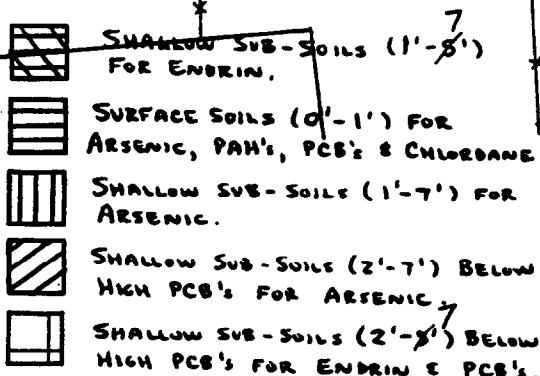 SHALLOW SUB-SOILS (1'-7')
FOR ENDRIN.
SURFACE SOILS (0'-1') FOR
ARSENIC, PAH'S, PCB'S & CHLORDANE
SHALLOW SUB-SOILS (1'-7') FOR
ARSENIC.
SHALLOW SUB-SOILS (2'-7') BELOW
HIGH PCB'S FOR ARSENIC.
SHALLOW SUB-SOILS (2'-7') BELOW
HIGH PCB'S FOR ENDRIN & PCB'S.